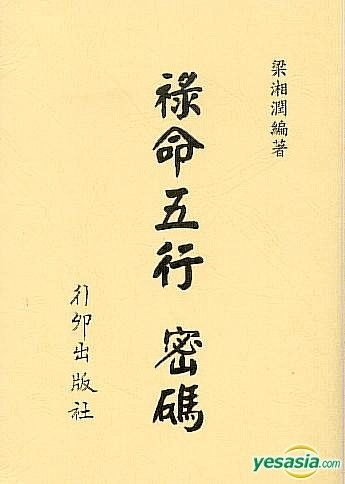 梁湘潤編著
祿命五行 密碼
行卯出版社
yesasia.com